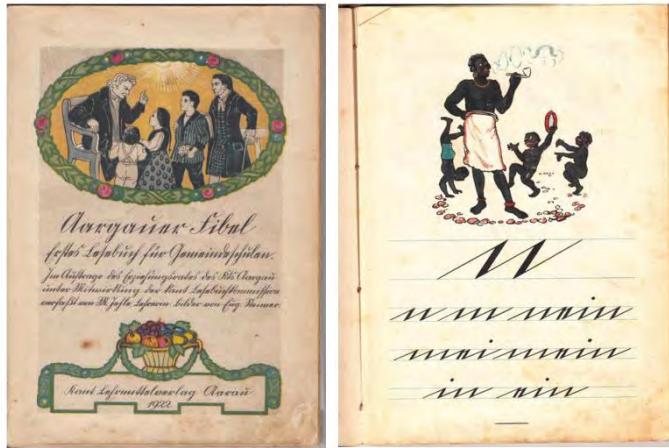 Aargauer Fibel
Erstes Lesebuch für Gemeindeschulen.
Im Auftrage des Erziehungsrates des Kts. Aargau
unter Mitwirkung der kant. Lesebuchkommission
verfaßt von M. Jehle Lehrerin. Bilder von Eug. Steimer.
Kant. Lehrmittelverlag Aarau
1922
n
n m nein
mei mein
in ein